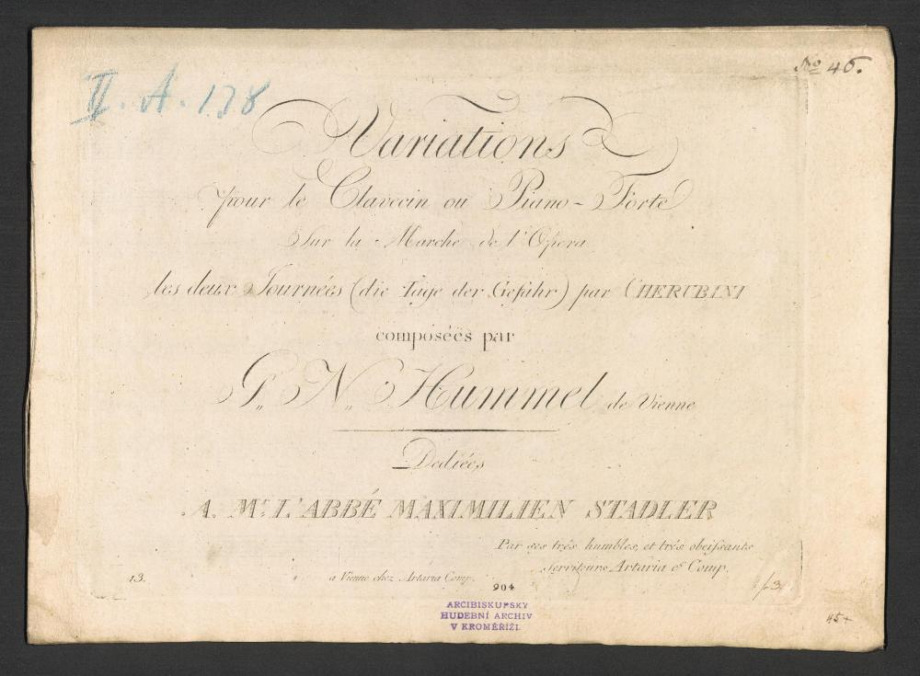 II. A. 178
No 46.
Variations
pour le Clavecin ou Piano-Forte
Sur la Marche de l'Opera
les deux Journées (die Tage der Gefahr) par CHERUBINI
composéés par
J„ N„ Hummel de Vienne
Dediées
A. Mr. L'ABBÉ MAXIMILIEN STADLER
Par ses trés humbles, et trés obeissants
Serviteurs Artaria et Comp.
a Vienne chez Artaria Comp.
904
ARCIBISKUPSKÝ
HUDEBNÍ ARCHIV
V KROMĚŘÍŽI.